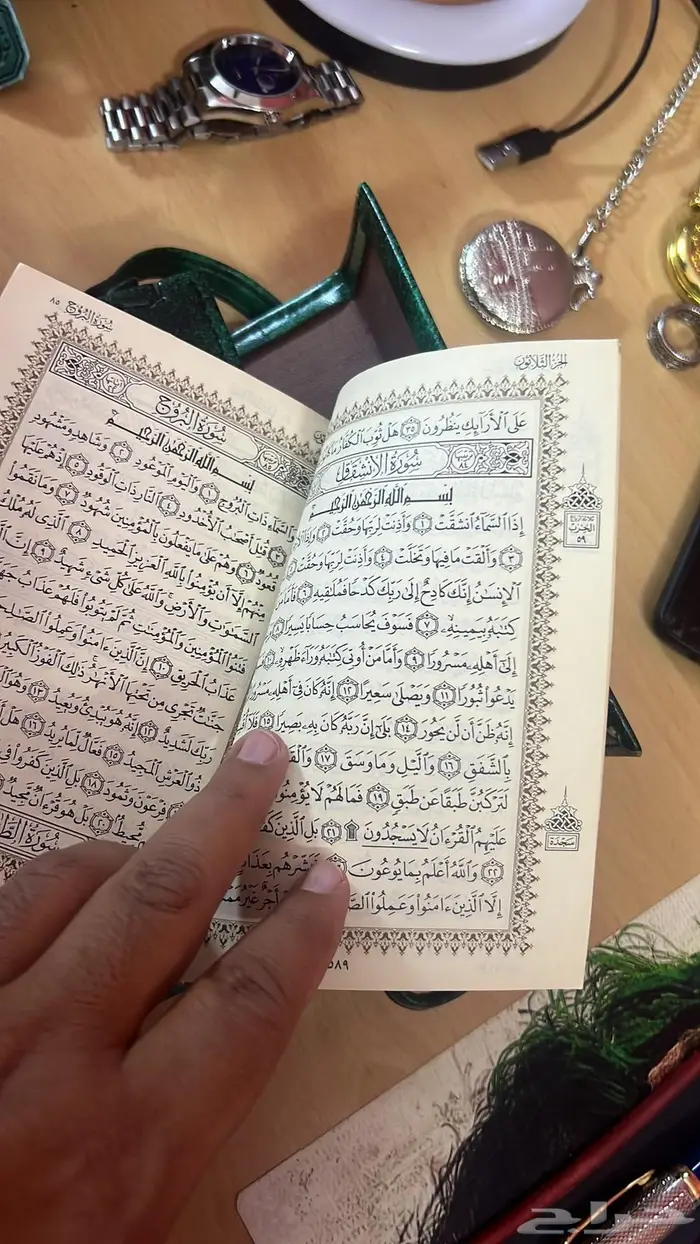 الجزء الثلاثون
عَلَى ٱلْأَرَآئِكِ يَنظُرُونَ ٣٥ هَلْ ثُوِّبَ ٱلْكُفَّارُ مَا
سُورَةُ الانشقاق
٨٤
بِسْمِ ٱللَّهِ ٱلرَّحْمَٰنِ ٱلرَّحِيمِ
إِذَا ٱلسَّمَآءُ ٱنشَقَّتْ ١ وَأَذِنَتْ لِرَبِّهَا وَحُقَّتْ ٢ وَإِذَا
٣ وَأَلْقَتْ مَا فِيهَا وَتَخَلَّتْ ٤ وَأَذِنَتْ لِرَبِّهَا وَحُقَّتْ
ٱلْإِنسَٰنُ إِنَّكَ كَادِحٌ إِلَىٰ رَبِّكَ كَدْحًا فَمُلَٰقِيهِ ٦ فَأَمَّا
كِتَٰبَهُۥ بِيَمِينِهِۦ ٧ فَسَوْفَ يُحَاسَبُ حِسَابًا يَسِيرًا
إِلَىٰٓ أَهْلِهِۦ مَسْرُورًا ٩ وَأَمَّا مَنْ أُوتِىَ كِتَٰبَهُۥ وَرَآءَ ظَهْرِهِۦ
يَدْعُوا۟ ثُبُورًا ١١ وَيَصْلَىٰ سَعِيرًا ١٢ إِنَّهُۥ كَانَ فِىٓ أَهْلِهِۦ
إِنَّهُۥ ظَنَّ أَن لَّن يَحُورَ ١٤ بَلَىٰٓ إِنَّ رَبَّهُۥ كَانَ بِهِۦ بَصِيرًا ١٥
بِٱلشَّفَقِ ١٦ وَٱلَّيْلِ وَمَا وَسَقَ ١٧
لَتَرْكَبُنَّ طَبَقًا عَن طَبَقٍ ١٩ فَمَا لَهُمْ لَا يُؤْمِنُونَ
عَلَيْهِمُ ٱلْقُرْءَانُ لَا يَسْجُدُونَ ۩ ٢١ بَلِ ٱلَّذِينَ
٢٢ وَٱللَّهُ أَعْلَمُ بِمَا يُوعُونَ
إِلَّا ٱلَّذِينَ ءَامَنُوا۟ وَعَمِلُوا۟
٥٨٩
الحزب
٥٩
سجدة
سورة البروج
سُورَةُ البُرُوجِ
بِسْمِ ٱللَّهِ ٱلرَّحْمَٰنِ ٱلرَّحِيمِ
وَٱلسَّمَآءِ ذَاتِ ٱلْبُرُوجِ ١ وَٱلْيَوْمِ ٱلْمَوْعُودِ ٢ وَشَاهِدٍ وَمَشْهُودٍ
قُتِلَ أَصْحَٰبُ ٱلْأُخْدُودِ ٤ ٱلنَّارِ ذَاتِ ٱلْوَقُودِ ٥ إِذْ هُمْ عَلَيْهَا
قُعُودٌ ٦ وَهُمْ عَلَىٰ مَا يَفْعَلُونَ بِٱلْمُؤْمِنِينَ شُهُودٌ ٧ وَمَا نَقَمُوا۟
مِنْهُمْ إِلَّآ أَن يُؤْمِنُوا۟ بِٱللَّهِ ٱلْعَزِيزِ ٱلْحَمِيدِ ٨ ٱلَّذِى لَهُۥ مُلْكُ
ٱلسَّمَٰوَٰتِ وَٱلْأَرْضِ وَٱللَّهُ عَلَىٰ كُلِّ شَىْءٍ شَهِيدٌ ٩ إِنَّ
فَتَنُوا۟ ٱلْمُؤْمِنِينَ وَٱلْمُؤْمِنَٰتِ ثُمَّ لَمْ يَتُوبُوا۟ فَلَهُمْ عَذَابُ
عَذَابُ ٱلْحَرِيقِ ١٠ إِنَّ ٱلَّذِينَ ءَامَنُوا۟ وَعَمِلُوا۟
جَنَّٰتٌ تَجْرِى مِن تَحْتِهَا ٱلْأَنْهَٰرُ ذَٰلِكَ ٱلْفَوْزُ ٱلْكَبِيرُ
رَبِّكَ لَشَدِيدٌ ١٢ إِنَّهُۥ هُوَ يُبْدِئُ وَيُعِيدُ ١٣ وَهُوَ
ذُو ٱلْعَرْشِ ٱلْمَجِيدُ ١٥ فَعَّالٌ لِّمَا يُرِيدُ ١٦ هَلْ
فِرْعَوْنَ وَثَمُودَ ١٨ بَلِ ٱلَّذِينَ كَفَرُوا۟ فِى
مُّحِيطٌۢ ٢٠ بَلْ هُوَ قُرْءَانٌ مَّجِيدٌ
حراج